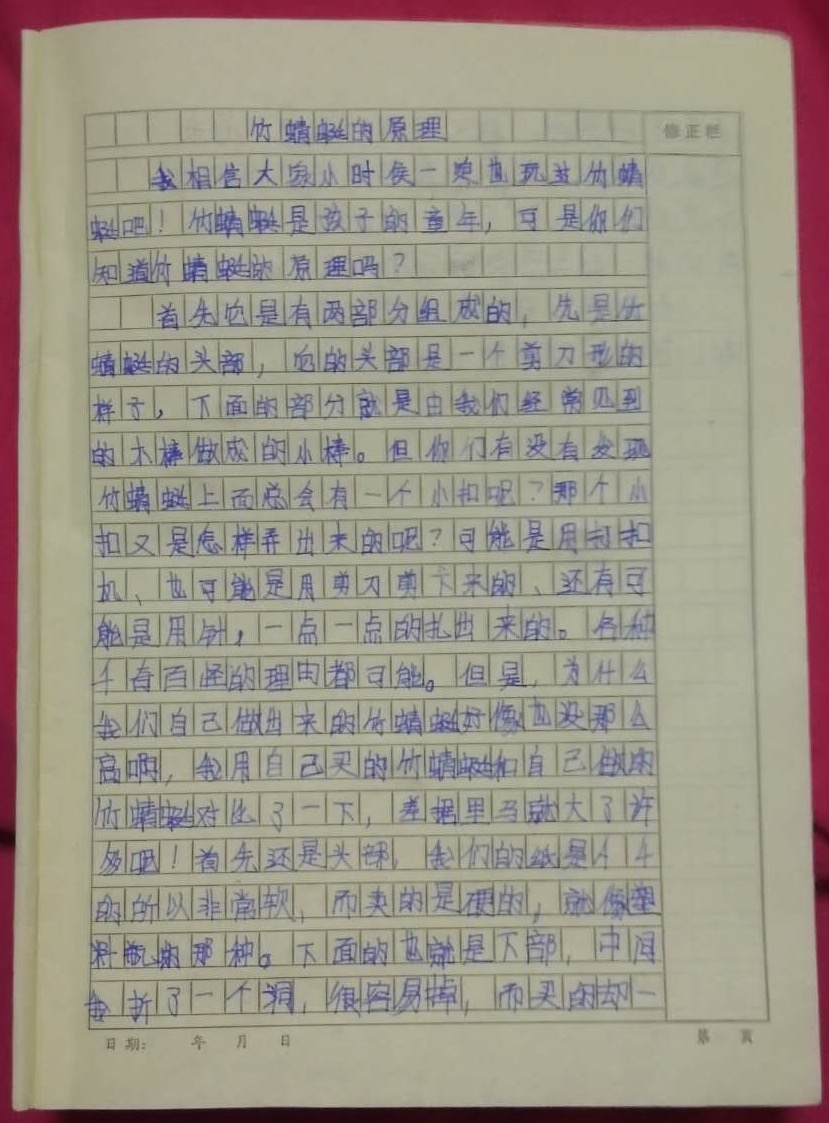 竹蜻蜓的原理
修正栏
我相信大家小时侯一定也玩过竹蜻
蜓吧！竹蜻蜓是孩子的童年，可是你们
知道竹蜻蜓的原理吗？
首先它是有两部分组成的，先是竹
蜻蜓的头部，它的头部是一个剪刀形的
样子，下面的部分就是由我们经常见到
的木棒做成的小棒。但你们有没有发现
竹蜻蜓上面总会有一个小扣呢？那个小
扣又是怎样弄出来的呢？可能是用打扣
机、也可能是用剪刀剪下来的、还有可
能是用针，一点一点的扎出来的。各种
千奇百怪的理由都可能。但是，为什么
我们自己做出来的竹蜻蜓好像也没那么
高啊，我用自己买的竹蜻蜓和自己做的
竹蜻蜓对比了一下，差据里马就大了许
多吧！首先还是头部，我们的纸是A4
的所以非常软，而卖的是硬的，就像塑
料瓶的那种。下面的也就是下部，中间
我折了一个洞，很容易掉，而买的却一
日期： 年 月 日
第 页